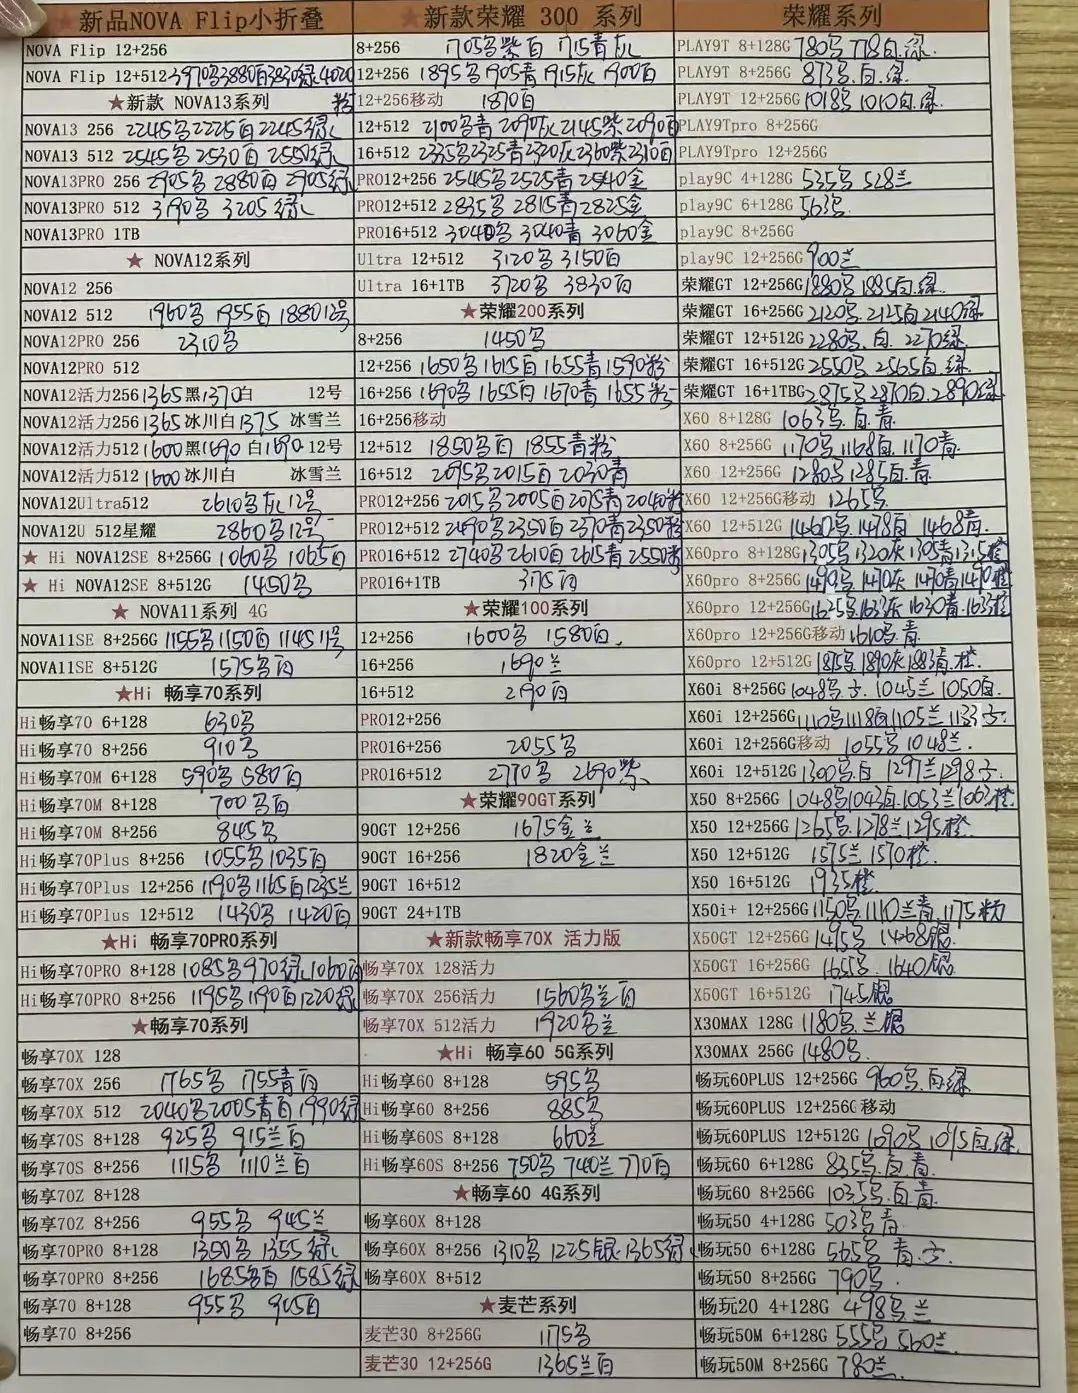 ★新品NOVA Flip小折叠
NOVA Flip 12+256
NOVA Flip 12+512 3970黑3880白3830绿4020粉
★新款 NOVA13系列
NOVA13 256 2245黑2225白2245绿
NOVA13 512 2545黑2530白2550绿
NOVA13PRO 256 2905黑 2880白 2905绿
NOVA13PRO 512 3190黑 3205绿
NOVA13PRO 1TB
★ NOVA12系列
NOVA12 256
NOVA12 512 1960黑 1955白 1880 12号
NOVA12PRO 256 2310黑
NOVA12PRO 512
NOVA12活力256 1365黑1370白 12号
NOVA12活力256 1365冰川白1375 冰雪兰
NOVA12活力512 1600黑1690白1690 12号
NOVA12活力512 1600冰川白 冰雪兰
NOVA12Ultra512 2610黑灰12号
NOVA12U 512星耀 2860黑12号
★ Hi NOVA12SE 8+256G 1060黑 1065白
★ Hi NOVA12SE 8+512G 1450黑
★ NOVA11系列 4G
NOVA11SE 8+256G 1155黑1150白1145 11号
NOVA11SE 8+512G 1575黑白
★Hi 畅享70系列
Hi畅享70 6+128 630黑
Hi畅享70 8+256 910黑
Hi畅享70M 6+128 590黑 580白
Hi畅享70M 8+128 700黑白
Hi畅享70M 8+256 845黑
Hi畅享70Plus 8+256 1055黑1035白
Hi畅享70Plus 12+256 1190黑1165白1235兰
Hi畅享70Plus 12+512 1430黑 1420白
★Hi 畅享70PRO系列
Hi畅享70PRO 8+128 1085黑970绿1060白
Hi畅享70PRO 8+256 1195黑1190白1220绿
★畅享70系列
畅享70X 128
畅享70X 256 1765黑 1755青白
畅享70X 512 2040黑2005青白1990绿
畅享70S 8+128 925黑 915兰白
畅享70S 8+256 1115黑 1110兰白
畅享70Z 8+128
畅享70Z 8+256 955黑 945兰
畅享70PRO 8+128 1350黑 1355绿
畅享70PRO 8+256 1685黑白 1585绿
畅享70 8+128 955黑 945白
畅享70 8+256
★新款荣耀 300 系列
8+256 1705黑紫白 1715青灰
12+256 1895黑1905青1915灰1900白
12+256移动 1870白
12+512 2100黑青2090灰2145紫2090白
16+512 2335黑2325青2320灰2360紫2310白
PRO12+256 2545黑2525青2540金
PRO12+512 2835黑2815青2825金
PRO16+512 3040黑3040青3060金
Ultra 12+512 3120黑3150白
Ultra 16+1TB 3720黑 3830白
★荣耀200系列
8+256 1450黑
12+256 1650黑1615白1655青1590粉
16+256 1690黑1655白1670青1655粉
16+256移动
12+512 1850黑白 1855青粉
16+512 2095黑2015白2030青
PRO12+256 2015黑2005白2075青2040粉
PRO12+512 2490黑2350白2370青2350粉
PRO16+512 2740黑2610白2615青2550粉
PRO16+1TB 375白
★荣耀100系列
12+256 1600黑 1580白
16+256 1690兰
16+512 2190白
PRO12+256
PRO16+256 2055黑
PRO16+512 2770黑 2690紫
★荣耀90GT系列
90GT 12+256 1675金兰
90GT 16+256 1820金兰
90GT 16+512
90GT 24+1TB
★新款畅享70X 活力版
畅享70X 128活力
畅享70X 256活力 1560黑兰白
畅享70X 512活力 1920黑兰
★Hi 畅享60 5G系列
Hi畅享60 8+128 595黑
Hi畅享60 8+256 885黑
Hi畅享60S 8+128 660兰
Hi畅享60S 8+256 750黑 740兰 770白
★畅享60 4G系列
畅享60X 8+128
畅享60X 8+256 1310黑 1225银 1365绿
畅享60X 8+512
★麦芒系列
麦芒30 8+256G 1175黑
麦芒30 12+256G 1365兰白
荣耀系列
PLAY9T 8+128G 780黑 778白.绿
PLAY9T 8+256G 873黑.白.绿
PLAY9T 12+256G 1018黑 1010白.绿
PLAY9Tpro 8+256G
PLAY9Tpro 12+256G
play9C 4+128G 535黑 528兰
play9C 6+128G 563黑
play9C 8+256G
play9C 12+256G 900兰
荣耀GT 12+256G 1880黑1885白.绿
荣耀GT 16+256G 2120黑.2125白2140绿
荣耀GT 12+512G 2280黑.白.2270绿
荣耀GT 16+512G 2550黑 2565白.绿
荣耀GT 16+1TBG 2875黑2870白.2890绿
X60 8+128G 1063黑.白.青
X60 8+256G 1170黑 1168白.1170青
X60 12+256G 1280黑1285白.青
X60 12+256G移动 1265黑
X60 12+512G 1460黑 1478白 1468青
X60pro 8+128G 1305黑1320灰1305青1315橙
X60pro 8+256G 1490黑1470灰1470青1490橙
X60pro 12+256G 1625黑1633灰1630青.1633橙
X60pro 12+256G移动 1610黑.青
X60pro 12+512G 1875黑1890灰1883青.橙
X60i 8+256G 1048黑.云.1045兰1050白
X60i 12+256G 1110黑1118白1105兰1133云
X60i 12+256G移动 1055黑1048兰
X60i 12+512G 1300黑.白 1297兰1298云
X50 8+256G 1048黑1043白1053兰1063橙
X50 12+256G 1265黑.1278兰1295橙
X50 12+512G 1575兰 1570橙
X50 16+512G 1935橙
X50i+ 12+256G 1150黑1110兰青.1175粉
X50GT 12+256G 1495黑 1468银
X50GT 16+256G 1655黑.1640银
X50GT 16+512G 1745银
X30MAX 128G 1180黑.兰银
X30MAX 256G 1480黑
畅玩60PLUS 12+256G 960黑.白绿
畅玩60PLUS 12+256G 移动
畅玩60PLUS 12+512G 1090黑1095白.绿
畅玩60 6+128G 835黑.白.青
畅玩60 8+256G 1035黑.白.青
畅玩50 4+128G 503黑青
畅玩50 6+128G 565黑 青.云
畅玩50 8+256G 790黑
畅玩20 4+128G 498黑兰
畅玩50M 6+128G 555黑 560兰
畅玩50M 8+256G 780兰